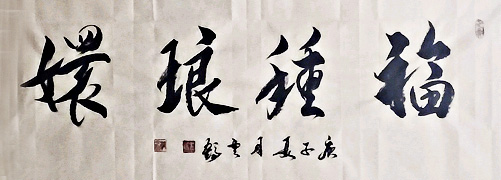 福種琅嬛
庚子夏月